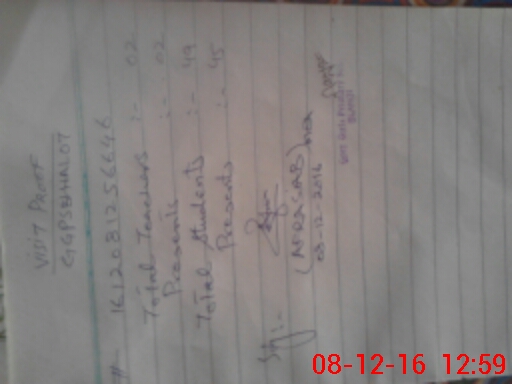 VISIT PROOF
GGPS BHALOT
# 161208125664 6
Total Teachers :- 02
Presents :- 02
Total Students :- 49
Presents :- 45
Sig :-
(AFRASIAB)
08-12-2016
08-12-16 12:59